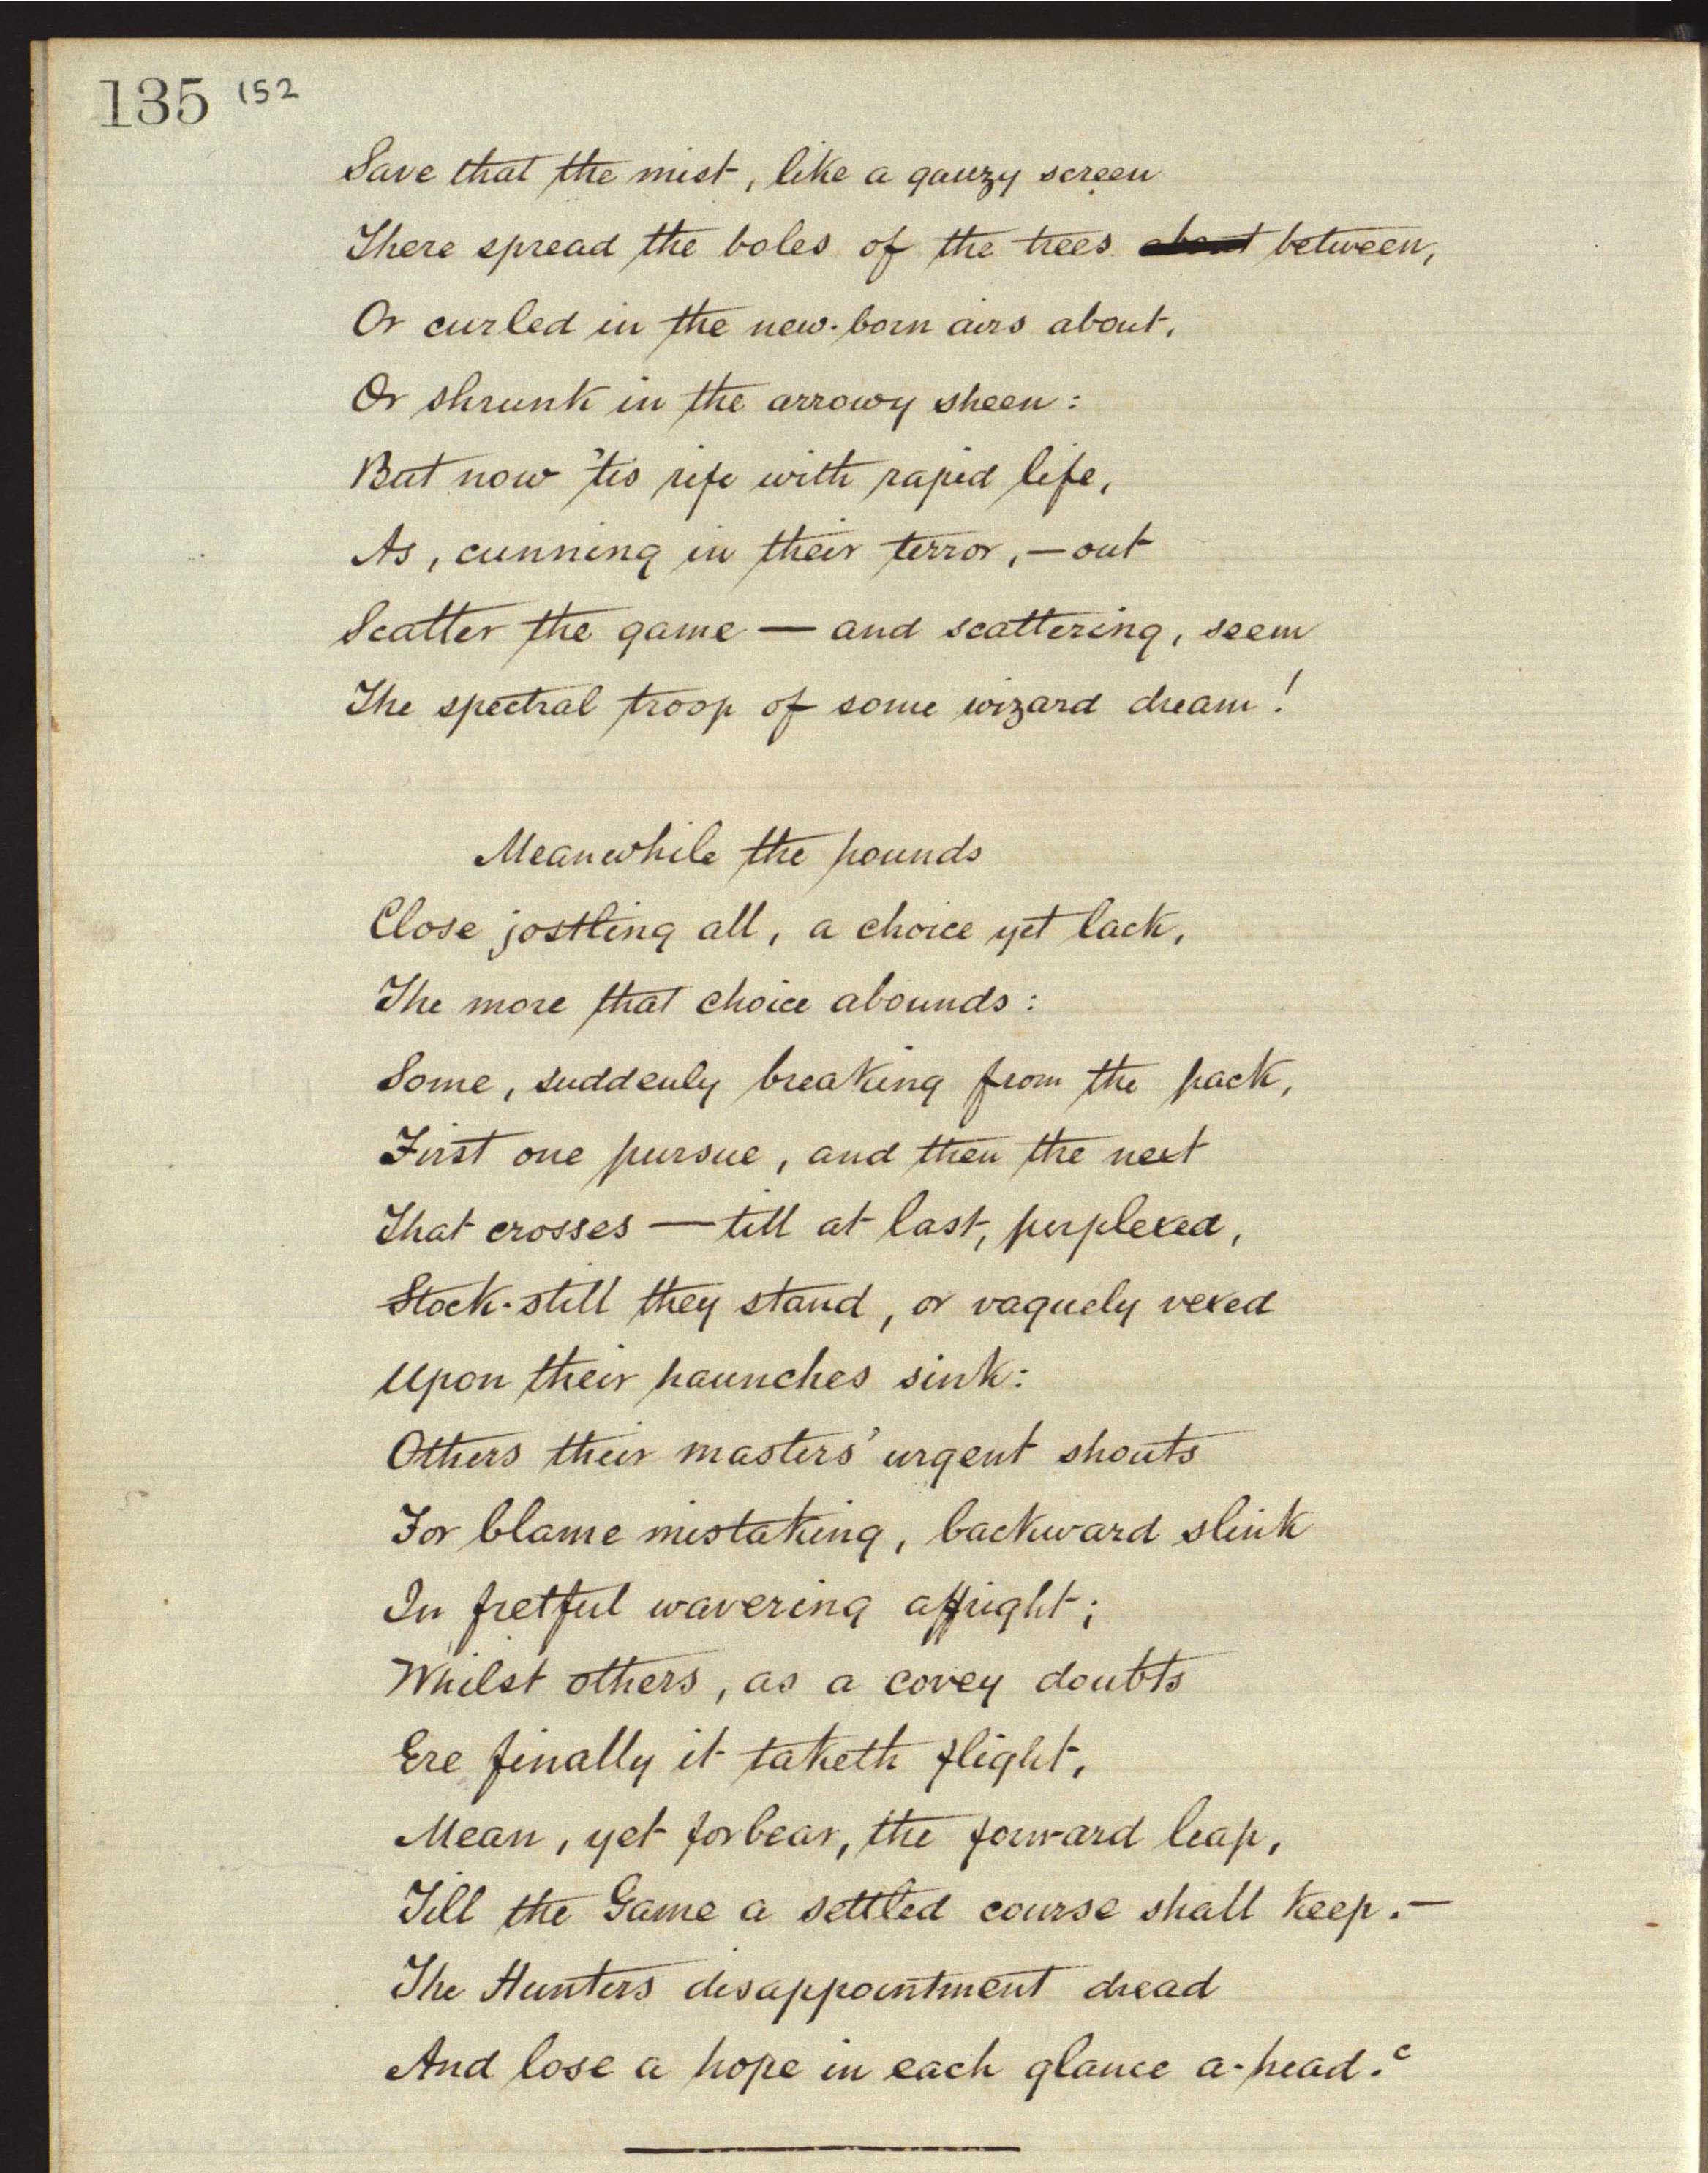 135 152
Save that the mist, like a gauzy screen
There spread the boles of the trees about between,
Or curled in the new-born airs about,
Or shrunk in the arrowy sheen:
But now 'tis rife with rapid life,
As, cunning in their terror, — out
Scatter the game — and scattering, seem
The spectral troop of some wizard dream!
Meanwhile the hounds
Close jostling all, a choice yet lack,
The more that choice abounds:
Some, suddenly breaking from the pack,
First one pursue, and then the next
That crosses — till at last, perplexed,
Stock-still they stand, or vaguely vexed
Upon their haunches sink:
Others their masters' urgent shouts
For blame mistaking, backward slink
In fretful wavering affright;
Whilst others, as a covey doubts
Ere finally it taketh flight,
Mean, yet forbear, the forward leap,
Till the Game a settled course shall keep. —
The Hunters disappointment dread
And lose a hope in each glance a-head. c